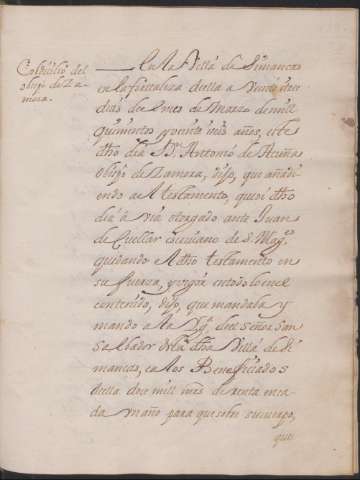 Cobdicilio del
obispo de Za-
mora.
En la Villa de Simancas
en la fortaleza della a veinte y tres
dias del mes de Marzo de mill
quinientos y veinte y seis años, este
dho dia Dn. Antonio de Acuña
obispo de Zamora, dijo, que añadi
endo a el testamento, que oi dho
dia à via otorgado ante Juan
de Cuellar escrivano de S. Magd.
quedando el dho testamento en
su fuerza, y vigor en todo lo en el
contenido, dijo, que mandaba y
mando a la Yga. del señor San
Salbador de la dha Villa de Si
mancas, e a los Beneficiados
della doce mill mrs de renta en ca
da un año para que sobre su cuerpo,
que